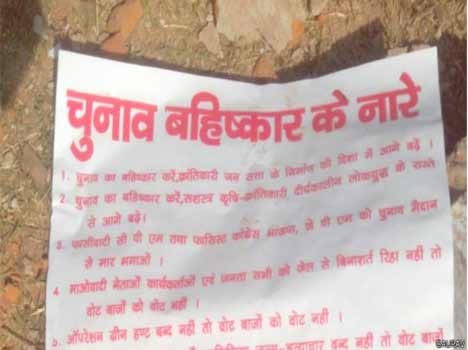 चुनाव बहिष्कार के नारे
1. चुनाव का बहिष्कार करें,क्रांतिकारी जन सत्ता के निर्माण की दिशा में आगे बढ़ें ।
2. चुनाव का बहिष्कार करें,सशस्त्र कृषि-क्रांतिकारी दीर्घकालीन लोकयुद्ध के रास्ते
से आगे बढ़ें।
3. फासीवादी सी पी एम तथा फासिस्ट कांग्रेस भाजपा, जे पी एम को चुनाव मैदान
से मार भगाओ ।
4 माओवादी नेताओं कार्यकर्ताओं एवं जनता सभी को जेल से बिनाशर्त रिहा नहीं तो
वोट बाजों को वोट नहीं ।
5. ऑपरेशन ग्रीन हण्ट बन्द नहीं तो वोट बाजों को वोट नहीं ।
बन्द नहीं तो वोट बाजों